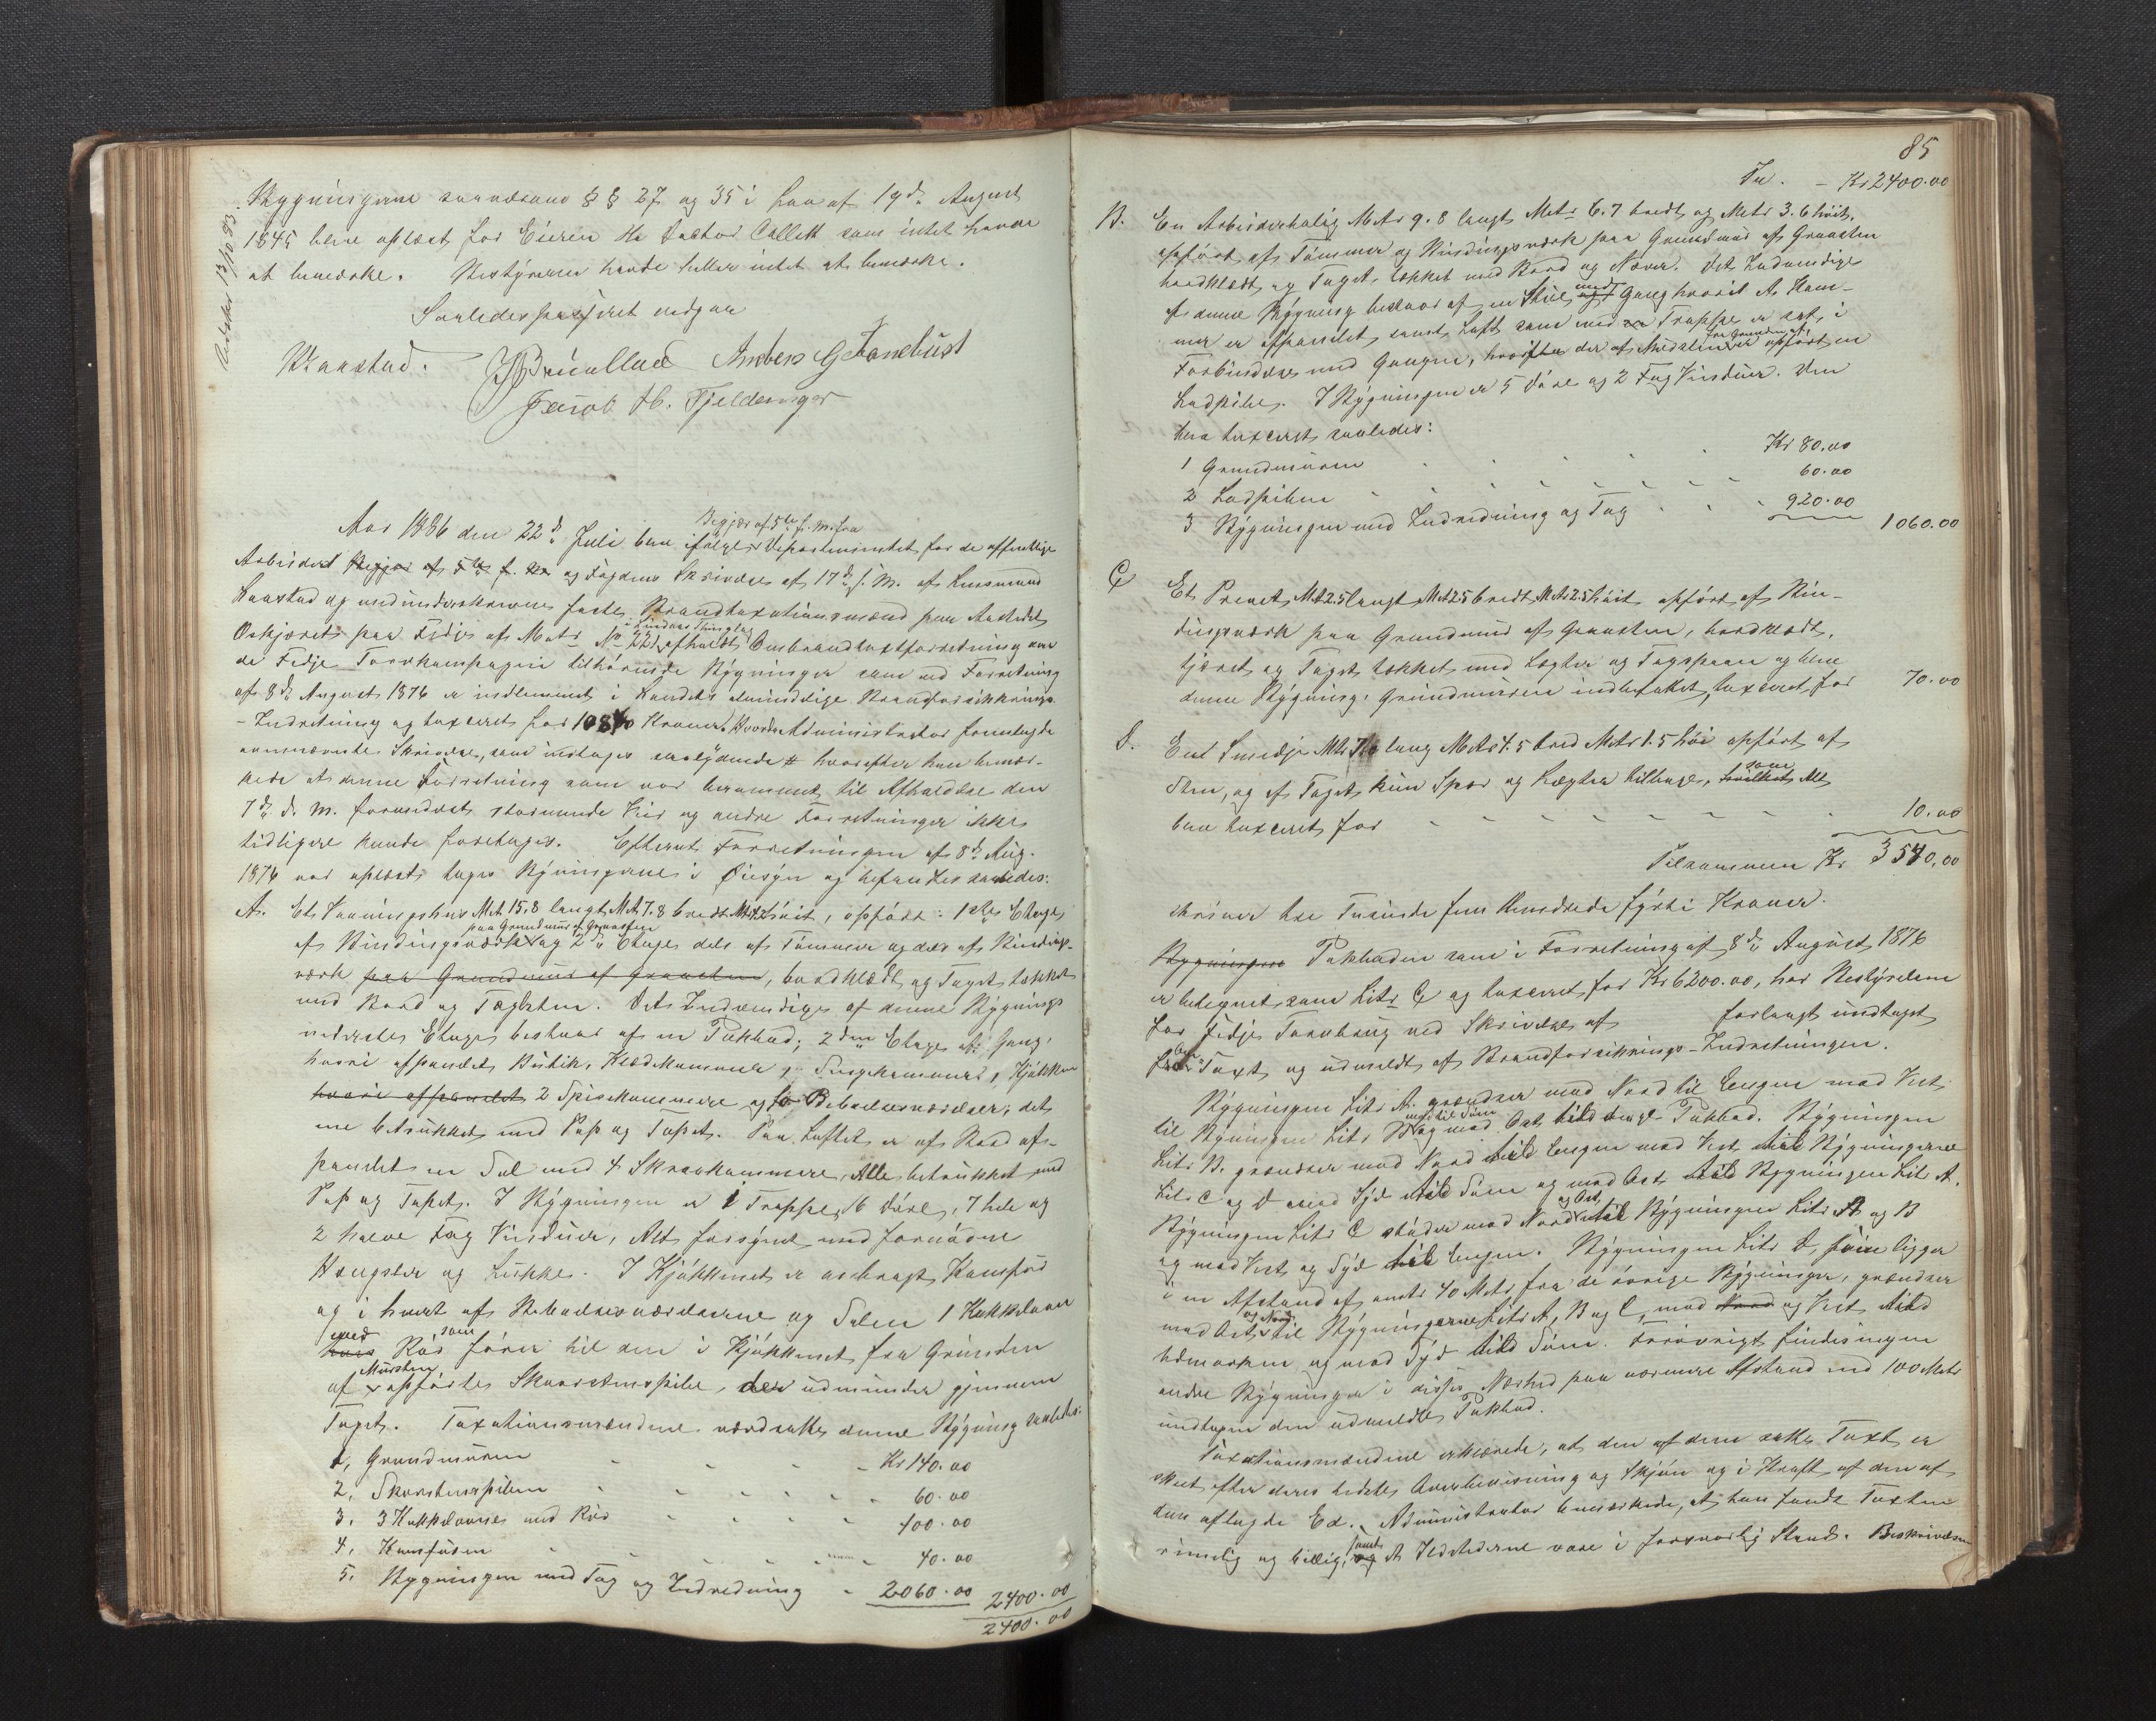 Bygningerne saavelsom §§ 27 og 35 i Lov af 19de August
1845 blev oplæst for Eieren Hr Doctor Collett som intet havde
at bemærke. Bestyreren havde heller intet at bemærke.
Saaledes passeret vidgaar
Kaastad. Anders G Tanebust
Jacob H. Fjeldanger
Aar 1886 den 22de Juli blev ifølge Begjær af 5te f. M. fra Departementet for de offentlige
Arbeider Begjær af 5te f. M. og Fogdens Skrivelse af 17de s. M. af Lensmand
Kaastad og medunderskrevne faste Brandtaxationsmænd paa Aastedet
paa Fedje af Matr No 221 i Lindaas Thinglag afholdt Ombrandtaxtforretning over
de Fedje Torvkompagni tilhørende Bygninger som ved Forretning
af 8de August 1876 er indlemmet i Landets almindelige Brandforsikrings
-Indretning og taxeret for 10840 Kroner. Administrator fremlagde
ovennævnte Skrivelse, som indtages saalydende # hvorefter han bemær-
kede at denne Forretning som var berammet til Afholdelse den
7de d. M. formedelst stormende Veir og andre Forretninger ikke
tidligere kunde foretages. Efterat Forretningen af 8de Aug.
1876 var oplæst, toges Bygningerne i Øiesyn og befandtes saaledes:
A. Et Vaaningshus Met 15,8 langt Met 7.8 bredt høit, opført: 1ste Etage
af Bindingsværk paa Grundmur af Graasten og 2den Etage dels af Tømmer og dels af Bindings-
værk paa Grundmur af Graasten, bordklædt og Taget tækket
med Bord og Tagsten. Det Indvendige af denne Bygnings
nederste Etage bestaar af en Pakbod; 2den Etage af: Gang,
hvori afpanelet Butik, Klædekammer, Kjøkken
hvori afpanelet 2 Spisekammere og Beboelsesværelser, det
ene betrukket med Pap og Tapet. Paa Loftet er af Bord af-
panelet en Sal med 4 Skraakammere, Alle betrukket med
Pap og Tapet. I Bygningen er 1 Trappe, 16 Døre, 7 hele og
2 halve Fag Vinduer, Alt forsynet med fornødne
Hængsler og Lukke. I Kjøkkenet er anbragt Komfur
og i hvert af Beboelsesværelserne og Salen 1 Kakkelovn
med Rør som fører til den i Kjøkkenet fra Grunden
af Mursten opførte Skorstenspibe, der udmunder gjennem
Taget. Taxationsmændene værdsatte denne Bygning saaledes:
1, Grundmuren - - - Kr 140.00
2, Skorstenspiben - - - 60.00
3. 3 Kakkelovne med Rør - - - 100.00
4, Komfuren - - - 40.00
5. Bygningen med Tag og Indredning - 2060.00 2400.00
2400.00
85
Tr. - Kr 2400.00
B. En Arbeiderbolig Metr 9.8 langt Metr 6.7 bredt og Metr 3.6 høit,
opført af Tømmer og Bindingsværk paa Grundmur af Graasten
bordklædt og Taget tækket med Bord og Næver. Det Indvendige
af denne Bygning bestaar af en Stue med Gang hvorit et Kam-
mer er afpanelet, samt Loft som med en Trappe er sat i
Forbindelse med Gangen, hvorfra der af Mursten fra Grunden af er opført en
Ludpibe. I Bygningen er 5 Døre og 2 Fag Vinduer. Den
blev taxeret saaledes:
1 Grundmuren - - - Kr 80.00
2 Ludpiben - - - 60.00
3 Bygningen med Indredning og Tag - - - 920.00 1060.00
C Et Privet, Met 2.5 langt Met 2.5 bredt, Met 2.5 høit opført af Bin-
dingsværk paa Grundmur af Graasten, bordklædt,
tjæret og Taget tækket med Lægter og Tagspaan og blev
denne Bygning, Grundmuren indbefattet, taxeret for 70.00
D. Ent Smedje Mtr 7.0 lang Metr 4.5 bred Metr 1.5 høi opført af
Sten, og af Taget kun Spær og Lægter tilbage, som Alt
blev taxeret for - - - 10.00
Tilsammen Kr 3540,00
skriver tre Tusinde fem Hundrede fyrti Kroner.
Bygningen Pakboden som i Forretning af 8de August 1876
er betegnet som Litr C og taxeret for Kr 6200.00, har Bestyrelsen
for Fedje Torvbrug ved Skrivelse af forlangt undtaget
fra Taxt og udmeldt af Brandforsikrings-Indretningen.
Bygningen Litr A. grændser mod Nord til Engen mod Vest
til Bygningen Litr B og mod Øst til Pakbod. Bygningen
Litr B. grændser mod Nord til Engen mod Vest til Bygningerne
Litr C og D mod Syd til Søen og mod Øst til Bygningen Litr A.
Bygningen Litr C støder mod Nord og Øst til Bygningen Litr A og B
og mod Vest og Syd til Engen. Bygningen Litr D, som ligger
i en Afstand af omtr 40 Metr fra de øvrige Bygninger, grændser
mod Øst og Nord til Bygningerne Litr A, B og C, mod Nord og Vest til
Udmarken og mod Syd til Søen. Forøvrigt findes ingen
andre Bygninger i disses Nærhed paa nærmere Afstand end 100 Metr
undtagen den udmeldte Pakbod.
Taxationsmændene erklærede, at den af dem satte Taxt er
skeet efter deres bedste Overbevisning og Skjøn og i Kraft af den af
dem aflagde Ed. Administrator bemærkede, at han fandt Taxten
rimelig og billig, samt at Ildstederne vare i forsvarlig Stand. Beskrivelsen